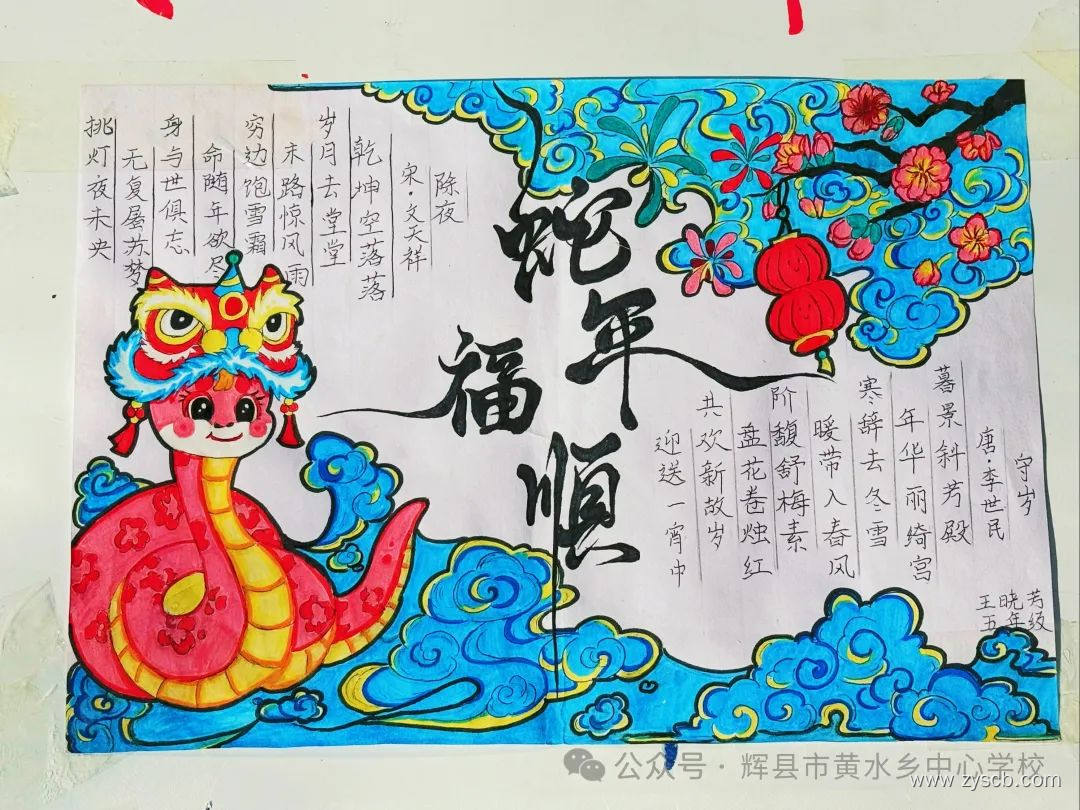 蛇年
福順
除夜
宋·文天祥
乾坤空落落
岁月去堂堂
末路惊风雨
穷边饱雪霜
命随年欲尽
身与世俱忘
无复屠苏梦
挑灯夜未央
守岁
唐·李世民
暮景斜芳殿
年华丽绮宫
寒辞去冬雪
暖带入春风
阶馥舒梅素
盘花卷烛红
共欢新故岁
迎送一宵中
王晓芳
五年级
公众号·辉县市黄水乡中心学校
www.zyscb.com